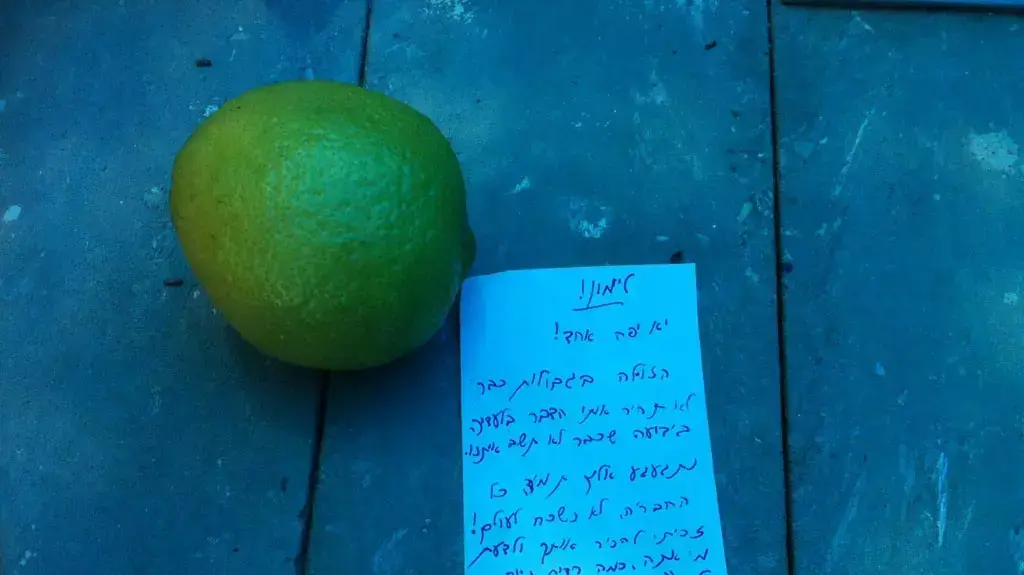 לימון!
יא יפה אחד!
הזולה בגבולות כבר
לא תהיה אותו הדבר בלעדיך
בידיעה שכבר לא תשב איתנו.
נתגעגע אליך תמיד כל
החבר'ה, לא נשכח לעולם!
זכיתי להכיר אותך ולדעת
מי אתה, כמה